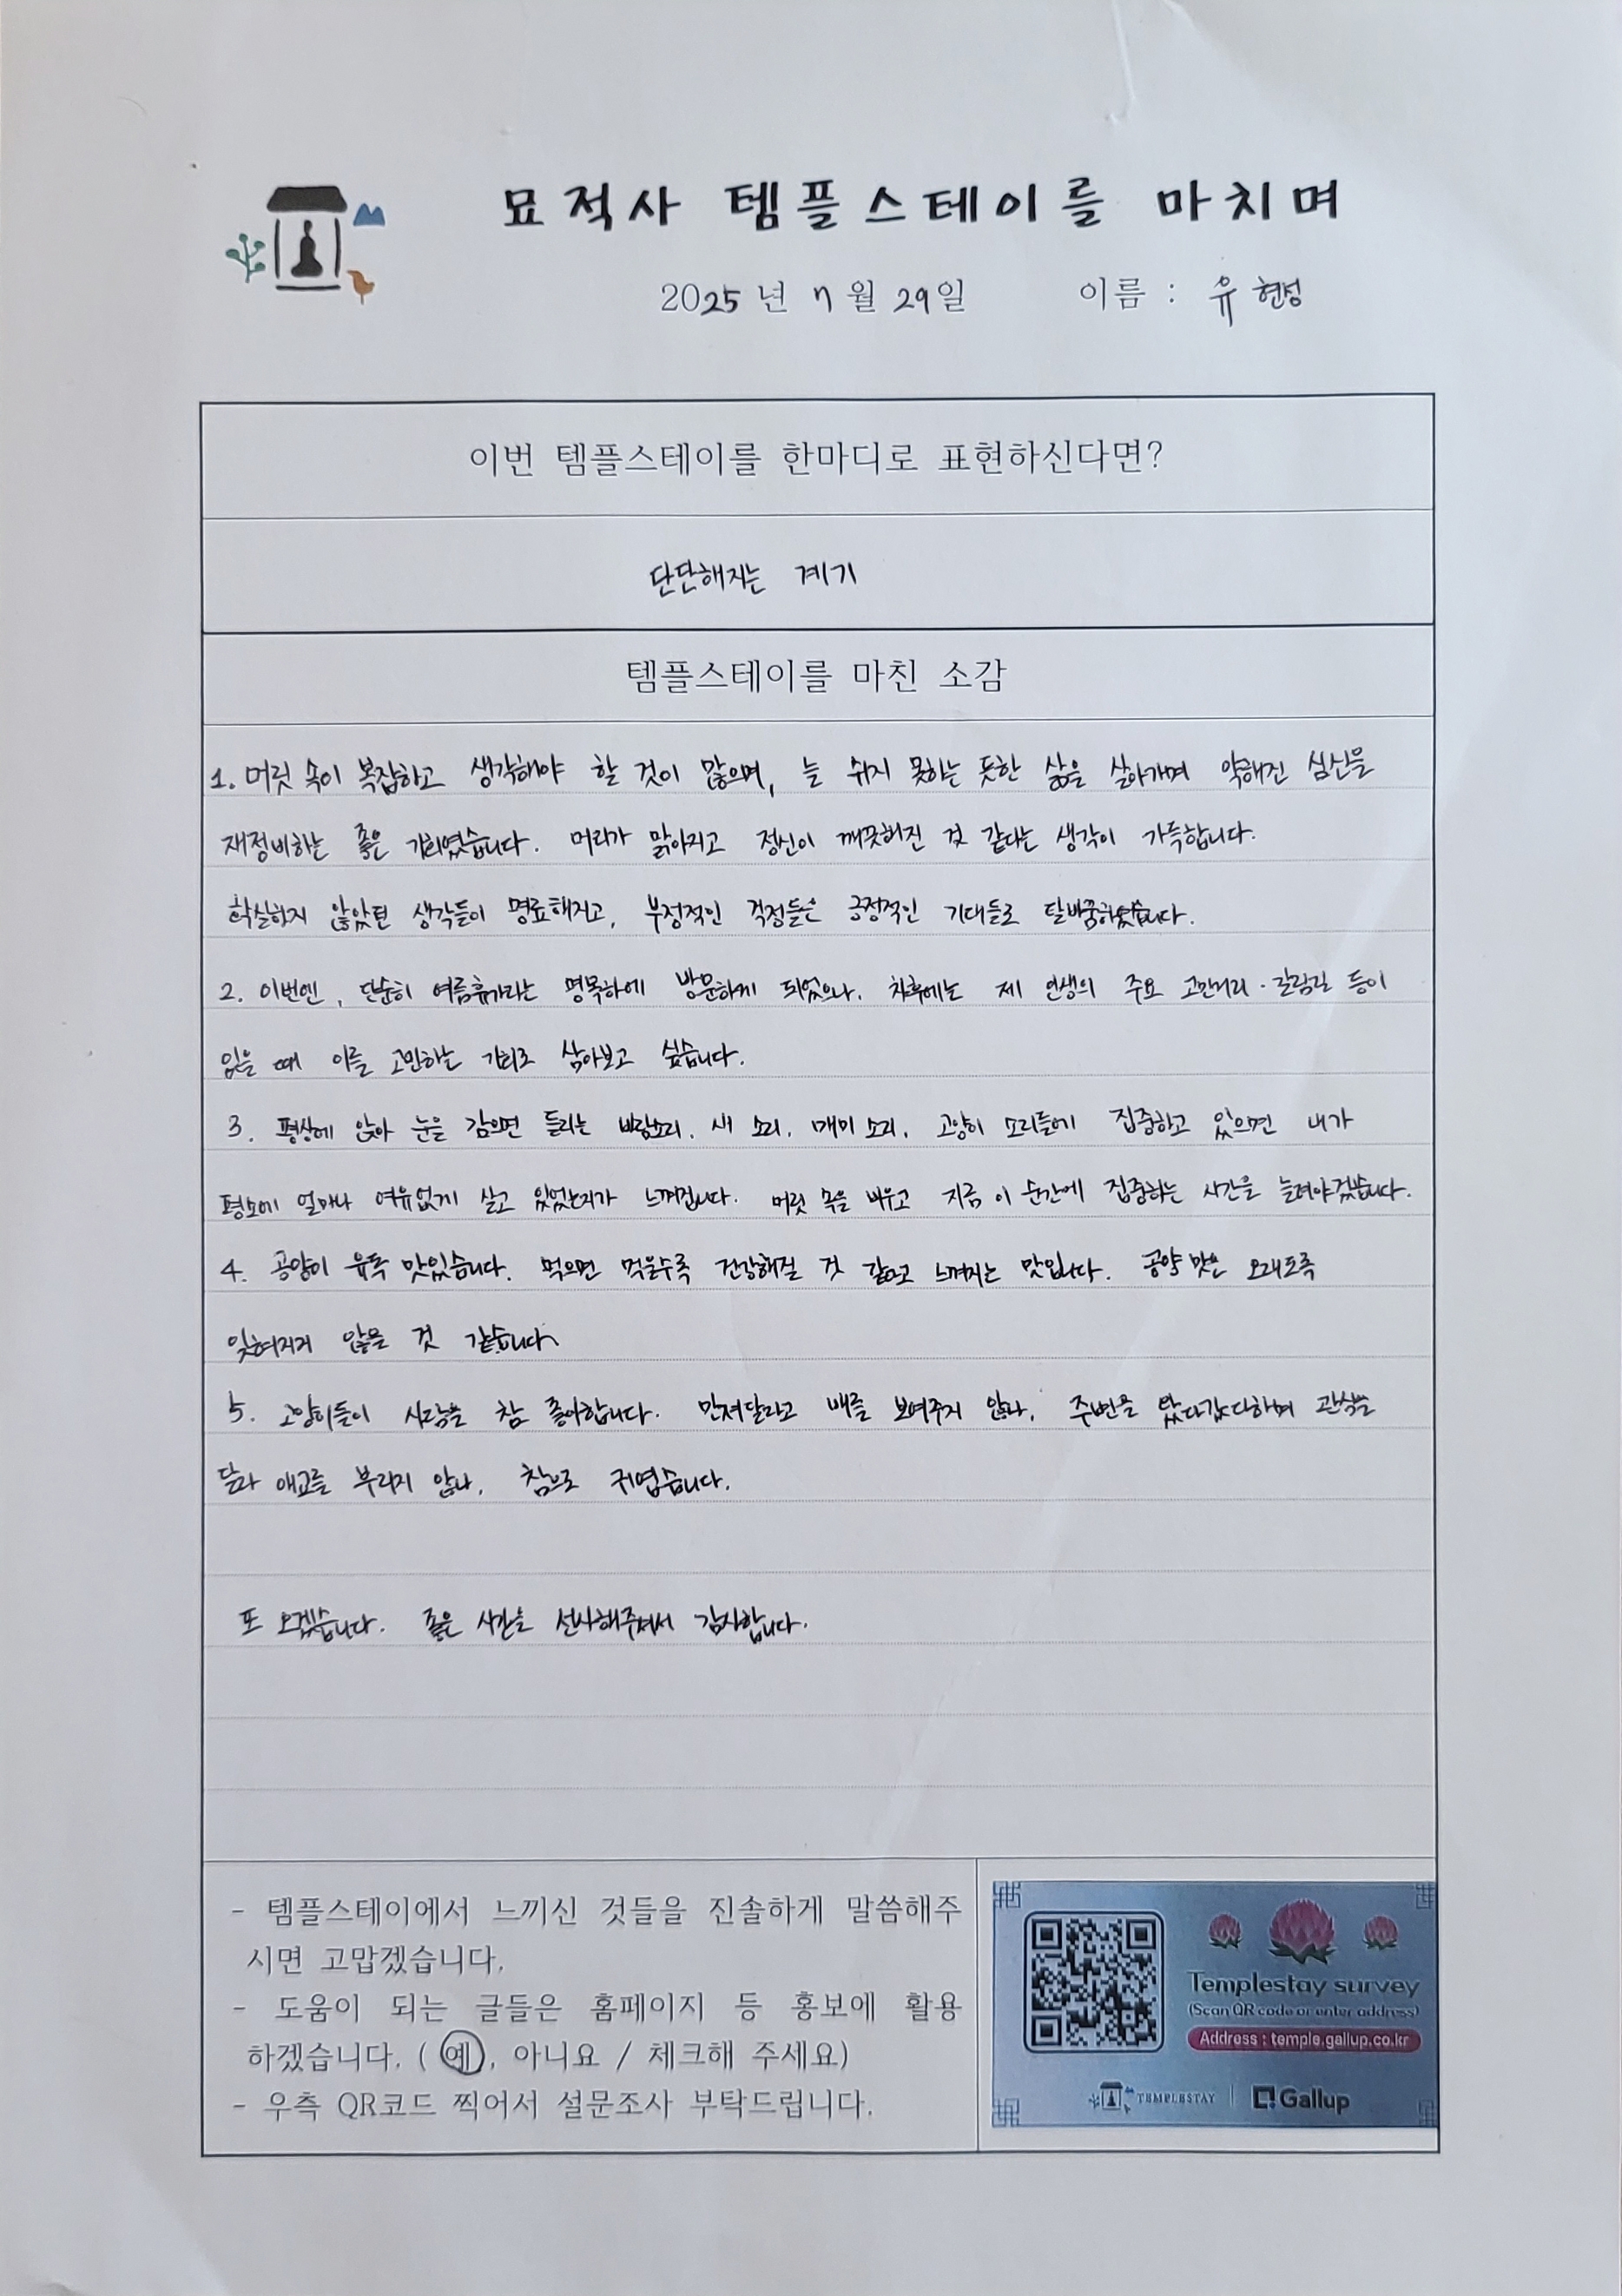 묘적사 템플스테이를 마치며
2025년 7월 29일 이름 : 유현성
이번 템플스테이를 한마디로 표현하신다면?
단단해지는 계기
템플스테이를 마친 소감
1. 머릿 속이 복잡하고 생각해야 할 것이 많으며, 늘 쉬지 못하는 듯한 삶을 살아가며 약해진 심신을
재정비하는 좋은 기회였습니다. 머리가 맑아지고 정신이 깨끗해진 것 같다는 생각이 가득합니다.
확실하지 않았던 생각들이 명료해지고, 부정적인 걱정들은 긍정적인 기대들로 탈바꿈하였습니다.
2. 이번엔, 단순히 여름휴가라는 명목하에 방문하게 되었으나, 차후에는 제 인생의 주요 고민거리·갈림길 등이
있을 때 이를 고민하는 기회로 삼아보고 싶습니다.
3. 평상에 앉아 눈을 감으면 들리는 바람소리, 새 소리, 매미 소리, 고양이 소리들에 집중하고 있으면 내가
평소에 얼마나 여유없게 살고 있었는지가 느껴집니다. 머릿 속을 비우고 지금 이 순간에 집중하는 시간을 늘려야겠습니다.
4. 공양이 유독 맛있습니다. 먹으면 먹을수록 건강해질 것 같다고 느껴지는 맛입니다. 공양 맛은 오래도록
잊혀지지 않을 것 같습니다.
5. 고양이들이 사람을 참 좋아합니다. 만져달라고 배를 보여주지 않나, 주변을 왔다갔다하며 관심을
달라 애교를 부리지 않나, 참으로 귀엽습니다.
또 오겠습니다. 좋은 시간을 선사해주셔서 감사합니다.
- 템플스테이에서 느끼신 것들을 진솔하게 말씀해주
시면 고맙겠습니다.
- 도움이 되는 글들은 홈페이지 등 홍보에 활용
하겠습니다. ( 예, 아니요 / 체크해 주세요)
- 우측 QR코드 찍어서 설문조사 부탁드립니다.
Templestay survey
(Scan QR code or enter address)
Address : temple.gallup.co.kr
TEMPLESTAY Gallup